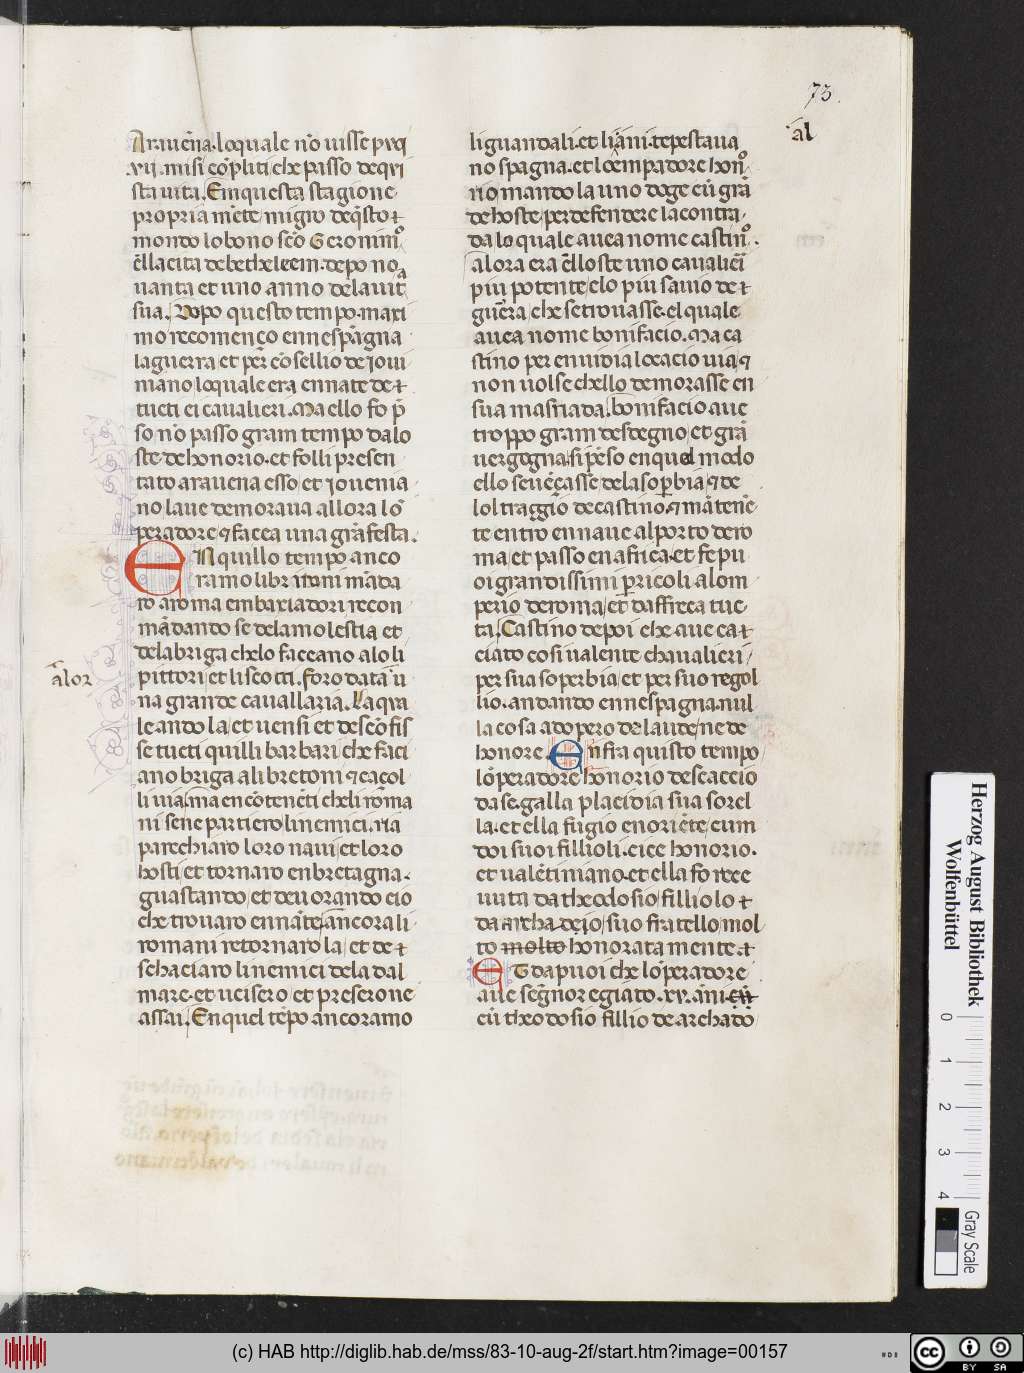 73.
al
Arauēna. loquale nō uisse pᵲ̄q̄
.vii. misi cōpliti che passo deq̄
sta uita. Enquesta stagione
propria mēte migro deq̄sto ⁊
mondo lo bono sēo Geronimº
ēlla cita de bethcleem. depo no
uanta et uno anno dela uitᵃ
sua. Dopo questo tempo. maxi
mo recomenço ennespāgna
la guerra et per cōsellio de Ioui
niano loquale era ennate de ⁊
tucti ei caualieri. Ma ello fo p̄
so nō passo gram tempo dalo
ste de honorio. et folli presen
tato a rauena esso et Iouenia
no laue demoraua allora lō
peradore ⁊ facea una grā festa.
EN quillo tempo anco
ramo li britoni māda
ro a roma embaxiadori recon
mādando se dela molestia et
dela briga chelo faceano alo li
alor
pittori et li scocti. foro data ū
na grande cauallaria. La qua
le ando la et uensi et descōfis
se tucti quilli barbari che faci
ano briga ali bretoni ⁊ cacol
li uia. ma encōtenēti cheli roma
ni sene partiero li nemici. ria
parechiaro loro naui et loro
hosti et tornaro enbretagna.
guastando et deuorando cio
che trouaro ennāte. ancora li
romani retornaro la et de ⁊
schaciaro li nemici dela dal
mare. et ucisero et preserone
assai. En quel tēpo ancoramo
li guandali. et li āni. repestaua
no spagna. et lo empadore honº
rio mando la uno doge cū grā
de hoste per defendere la contra
da lo quale auea nome castinº.
alora era ēlloste uno caualieri
piu potente elo piu sauio de ⁊
guēra che se trouasse. el quale
auea nome bonifacio. Ma ca
stino per enuidia lo cacio uia ⁊
non uolse ch ello demorasse en
sua masnada. bonifacio aue
troppo gram desdegno et grā
uergogna. si pēso en quel modo
ello se uēcasse dela soꝑbia ⁊ de
lol traggio de castino. ⁊ mātenē
te entro ennaue al porto de ro
ma et passo en africa. et fe pu
oi grandissimi ꝑicoli a lom
perio de roma et daffreca tuc
ta. Castino depoi che aue ca ⁊
ciato cosi ualente chaualieri
per sua soperbia et per suo regol
lio. andando ennespagna. nul
la cosa adopero de laude ne de
honore. Enfra quisto tempo
lōperadore honorio descaccio
da se. galla placidia sua sorel
la. et ella fugio en oriēte cum
doi suoi fillioli. cice honorio.
et ualētiniano. et ella fo rece
uuta da theodosio filliolo ⁊
da archadeio suo fratello mol
to molto honorata mente. ⁊
ET dapuoi che lōperadore
aue segnoregiato .xv. āni cū
cū theodosio fillio de archadō
Herzog August Bibliothek
Wolfenbüttel
0 1 2 3 4
Gray Scale
(c) HAB http://diglib.hab.de/mss/83-10-aug-2f/start.htm?image=00157
HAB
cc BY SA